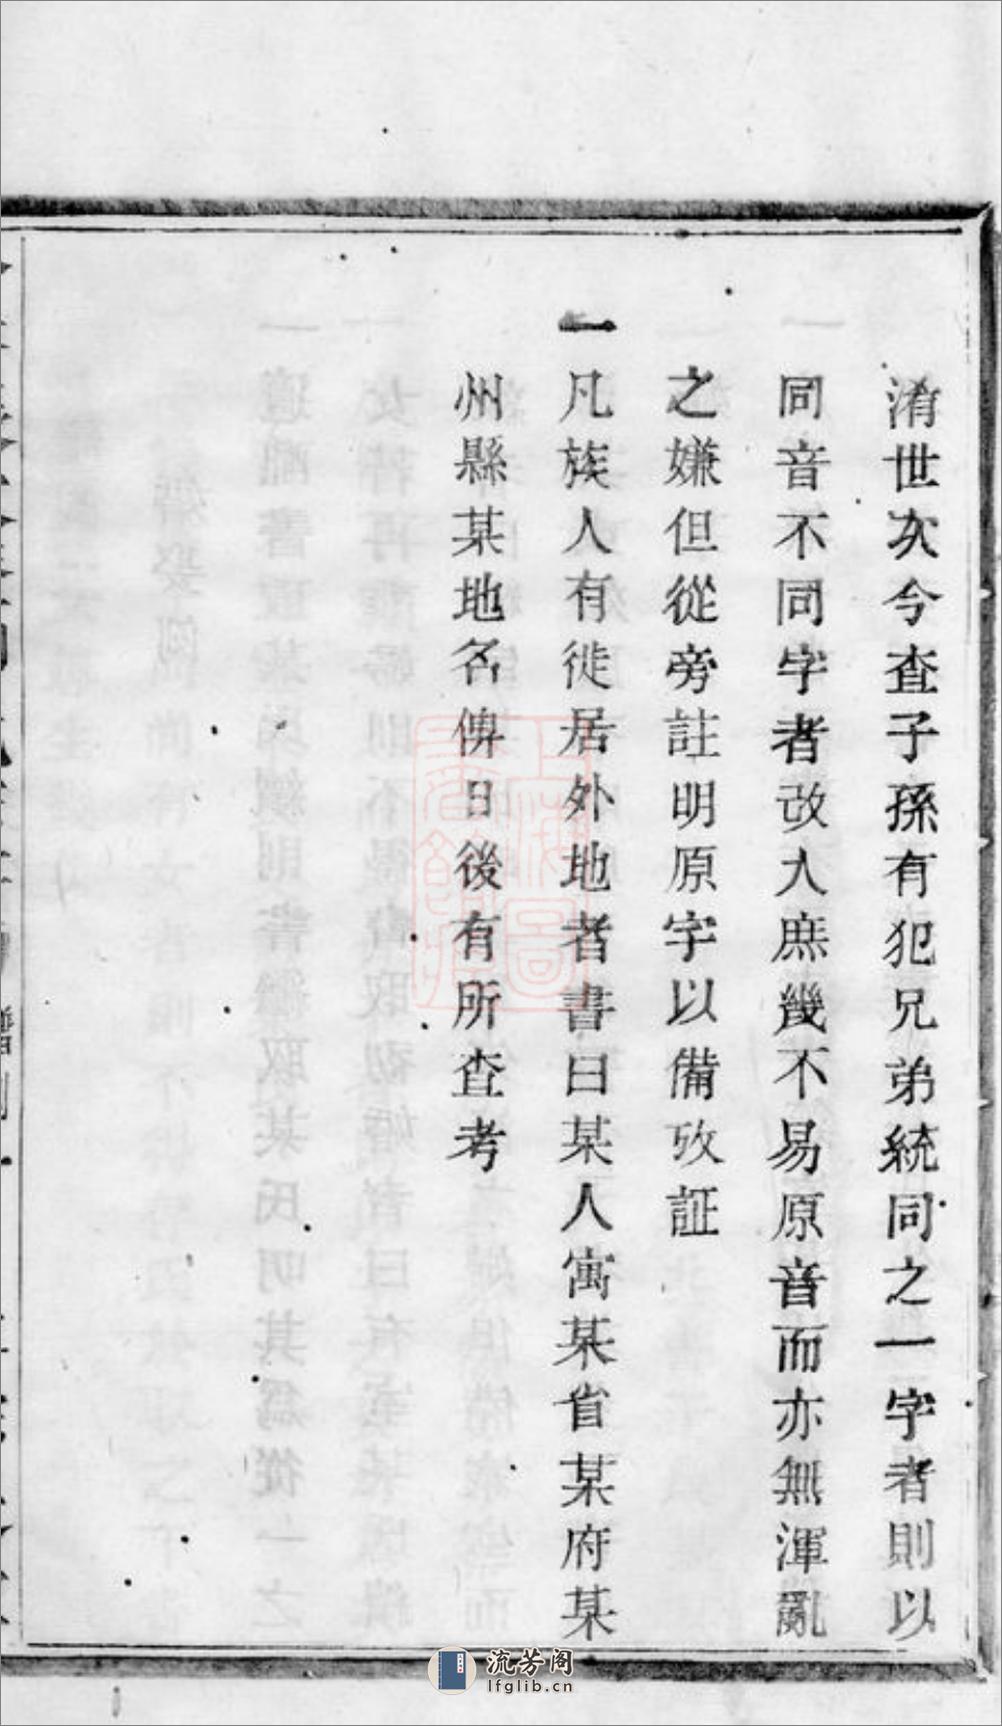 淆世次今查子孫有犯兄弟統同之一字者則以
同音不同字者改入庶幾不易原音而亦無渾亂
之嫌但從旁註明原字以備攷証
一凡族人有徙居外地者書曰某人寓某省某府某
州縣某地名俾日後有所查考
上海圖書館藏
流芳阁
lfglib.cn